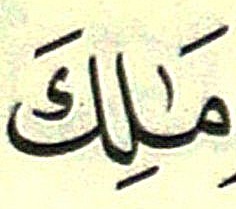 مَٰلِكَ